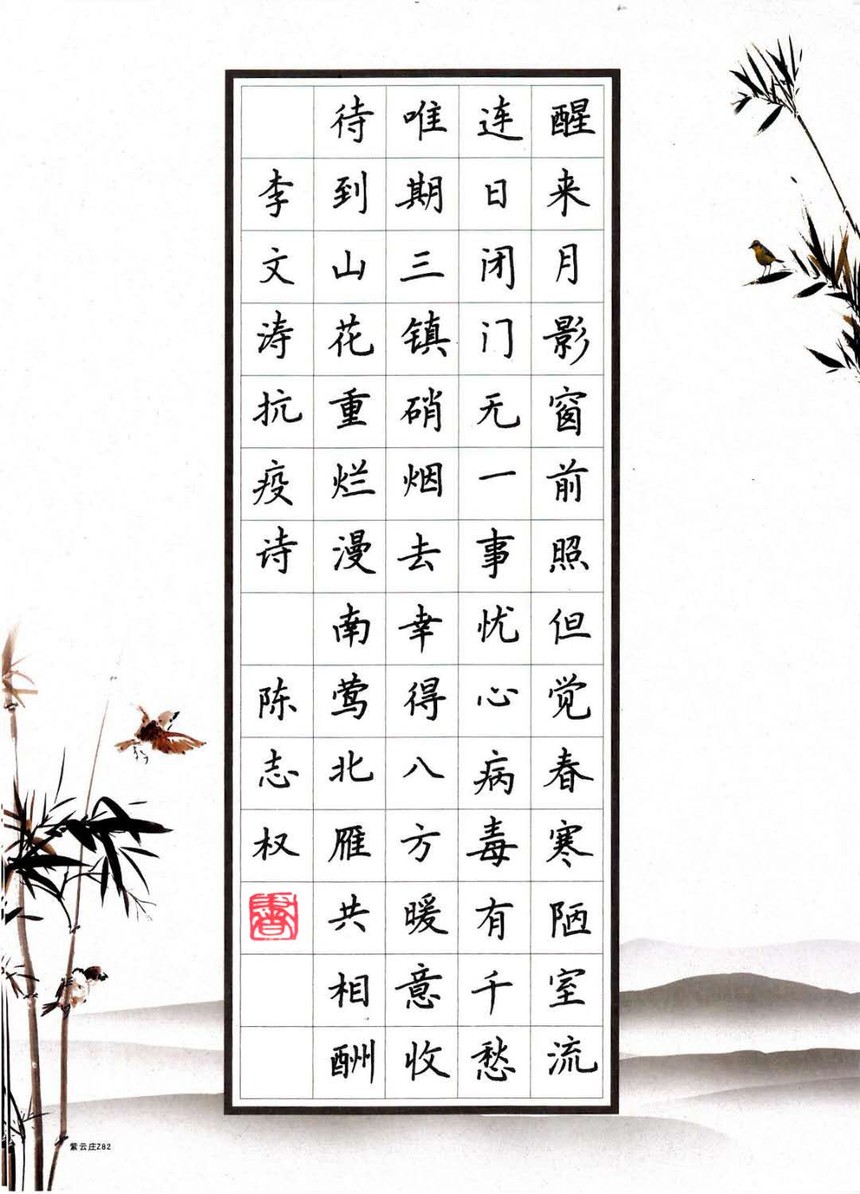 醒来月影窗前照但觉春寒陋室流
连日闭门无一事忧心病毒有千愁
唯期三镇硝烟去幸得八方暖意收
待到山花重烂漫南莺北雁共相酬
李文涛抗疫诗 陈志权
书
紫云庄Z82